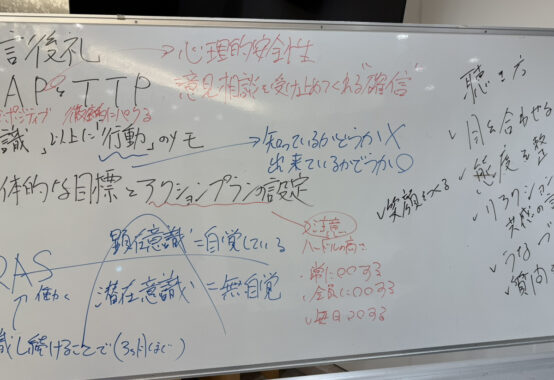 言後礼 → 心理的安全性
AP & TTP 意見相談を受け止めてくれる"確信"
ポジティブ 徹底的にパクる
識」以上に「行動」のツモ
知っているかどうか×
出来ているかどうか○
体的な目標とアクションプランの設定
注意
ハードルの高い
・常に○○する
・全員に○○する
・毎日○○する
RAS
顕在意識 = 自覚している
潜在意識 = 無自覚
↑働く
識し続けることで(3ヶ月くらい)
聴き方
✓目を合わせる
✓態度を整
✓笑顔をつくる
✓リアクション
共感の言
✓うなづ
✓質問